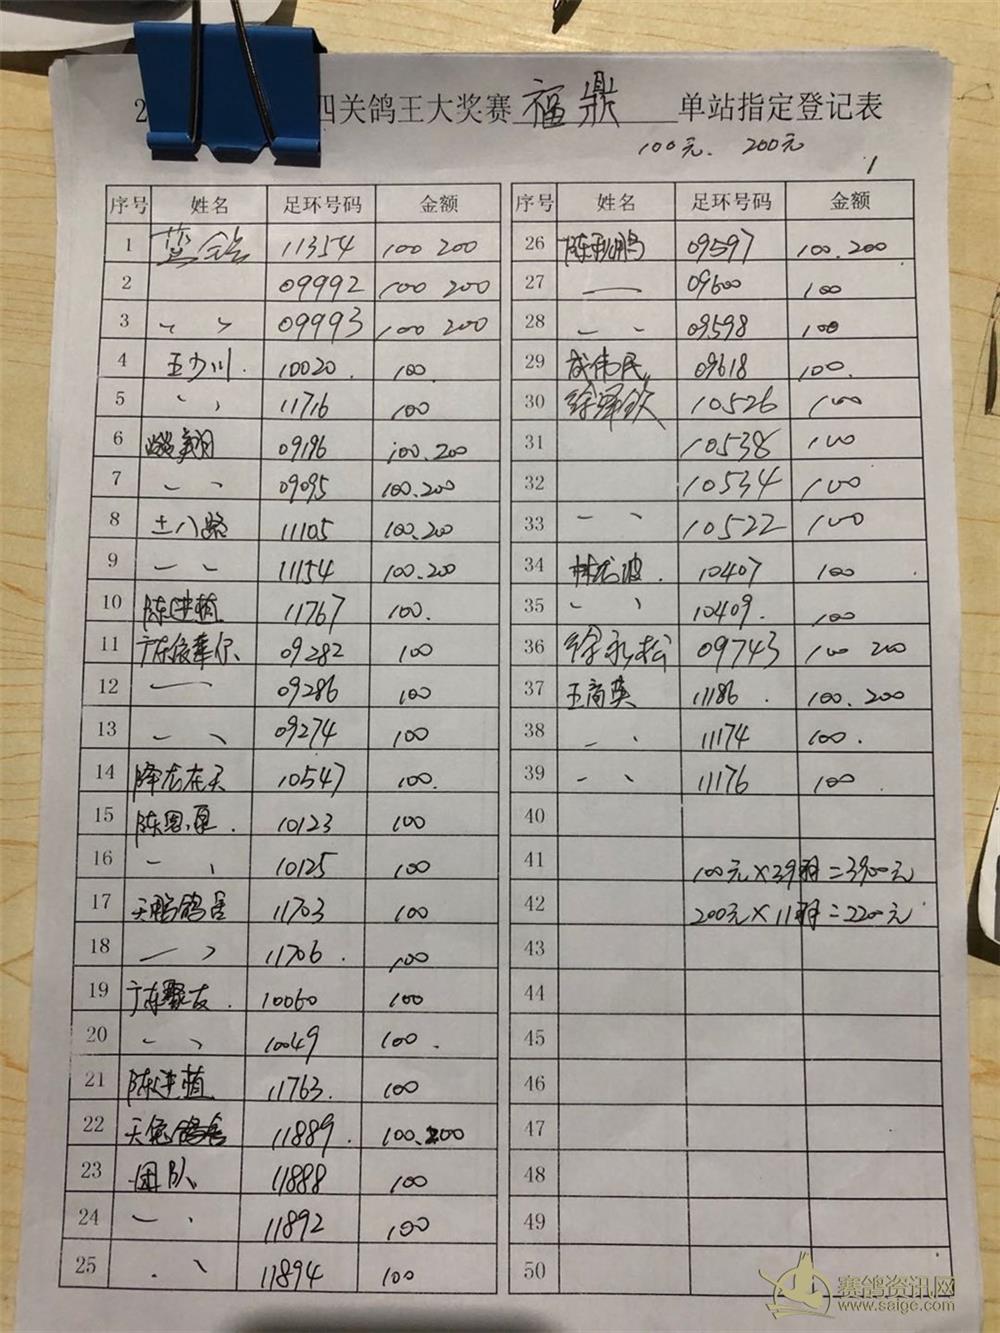 2 四关鸽王大奖赛 福鼎 单站指定登记表
100元. 200元
1
序号 姓名 足环号码 金额
1 蓝鸽 11354 100 200
2 09992 100 200
3 〃 09993 100 200
4 王少川. 10020. 100.
5 〃 11716 100
6 翔 09196 100.200
7 〃 09095 100.200
8 土八路 11105 100.200
9 〃 11154 100.200
10 陈进植 11767 100.
11 广东依华尔 09282 100
12 — 09286 100
13 〃 09274 100
14 降龙在天 10547 100.
15 陈恩. 10123 100
16 〃 10125 100
17 天鹏鸽舍 11703 100
18 〃 11706. 100
19 广东聚友. 10060 100
20 〃 10049 100.
21 陈进植 11763. 100
22 天兔鸽舍 11889. 100.200
23 团队 11888 100
24 〃 11892 100
25 〃 11894 100
序号 姓名 足环号码 金额
26 陈鹏 09597 100.200
27 — 09600 100
28 〃 09598 100
29 成伟民 09618 100.
30 徐泽钦 10526 100
31 10538 100
32 10534 100
33 〃 10522 100
34 林龙波. 10407 100
35 〃 10409. 100
36 徐永松 09743 100 200
37 王商英 11186. 100.200
38 〃 11174 100.
39 〃 11176 100
40
41 100元×39羽=3900元
42 200元×11羽=2200元
43
44
45
46
47
48
49
50
赛鸽资讯网
www.saige.com